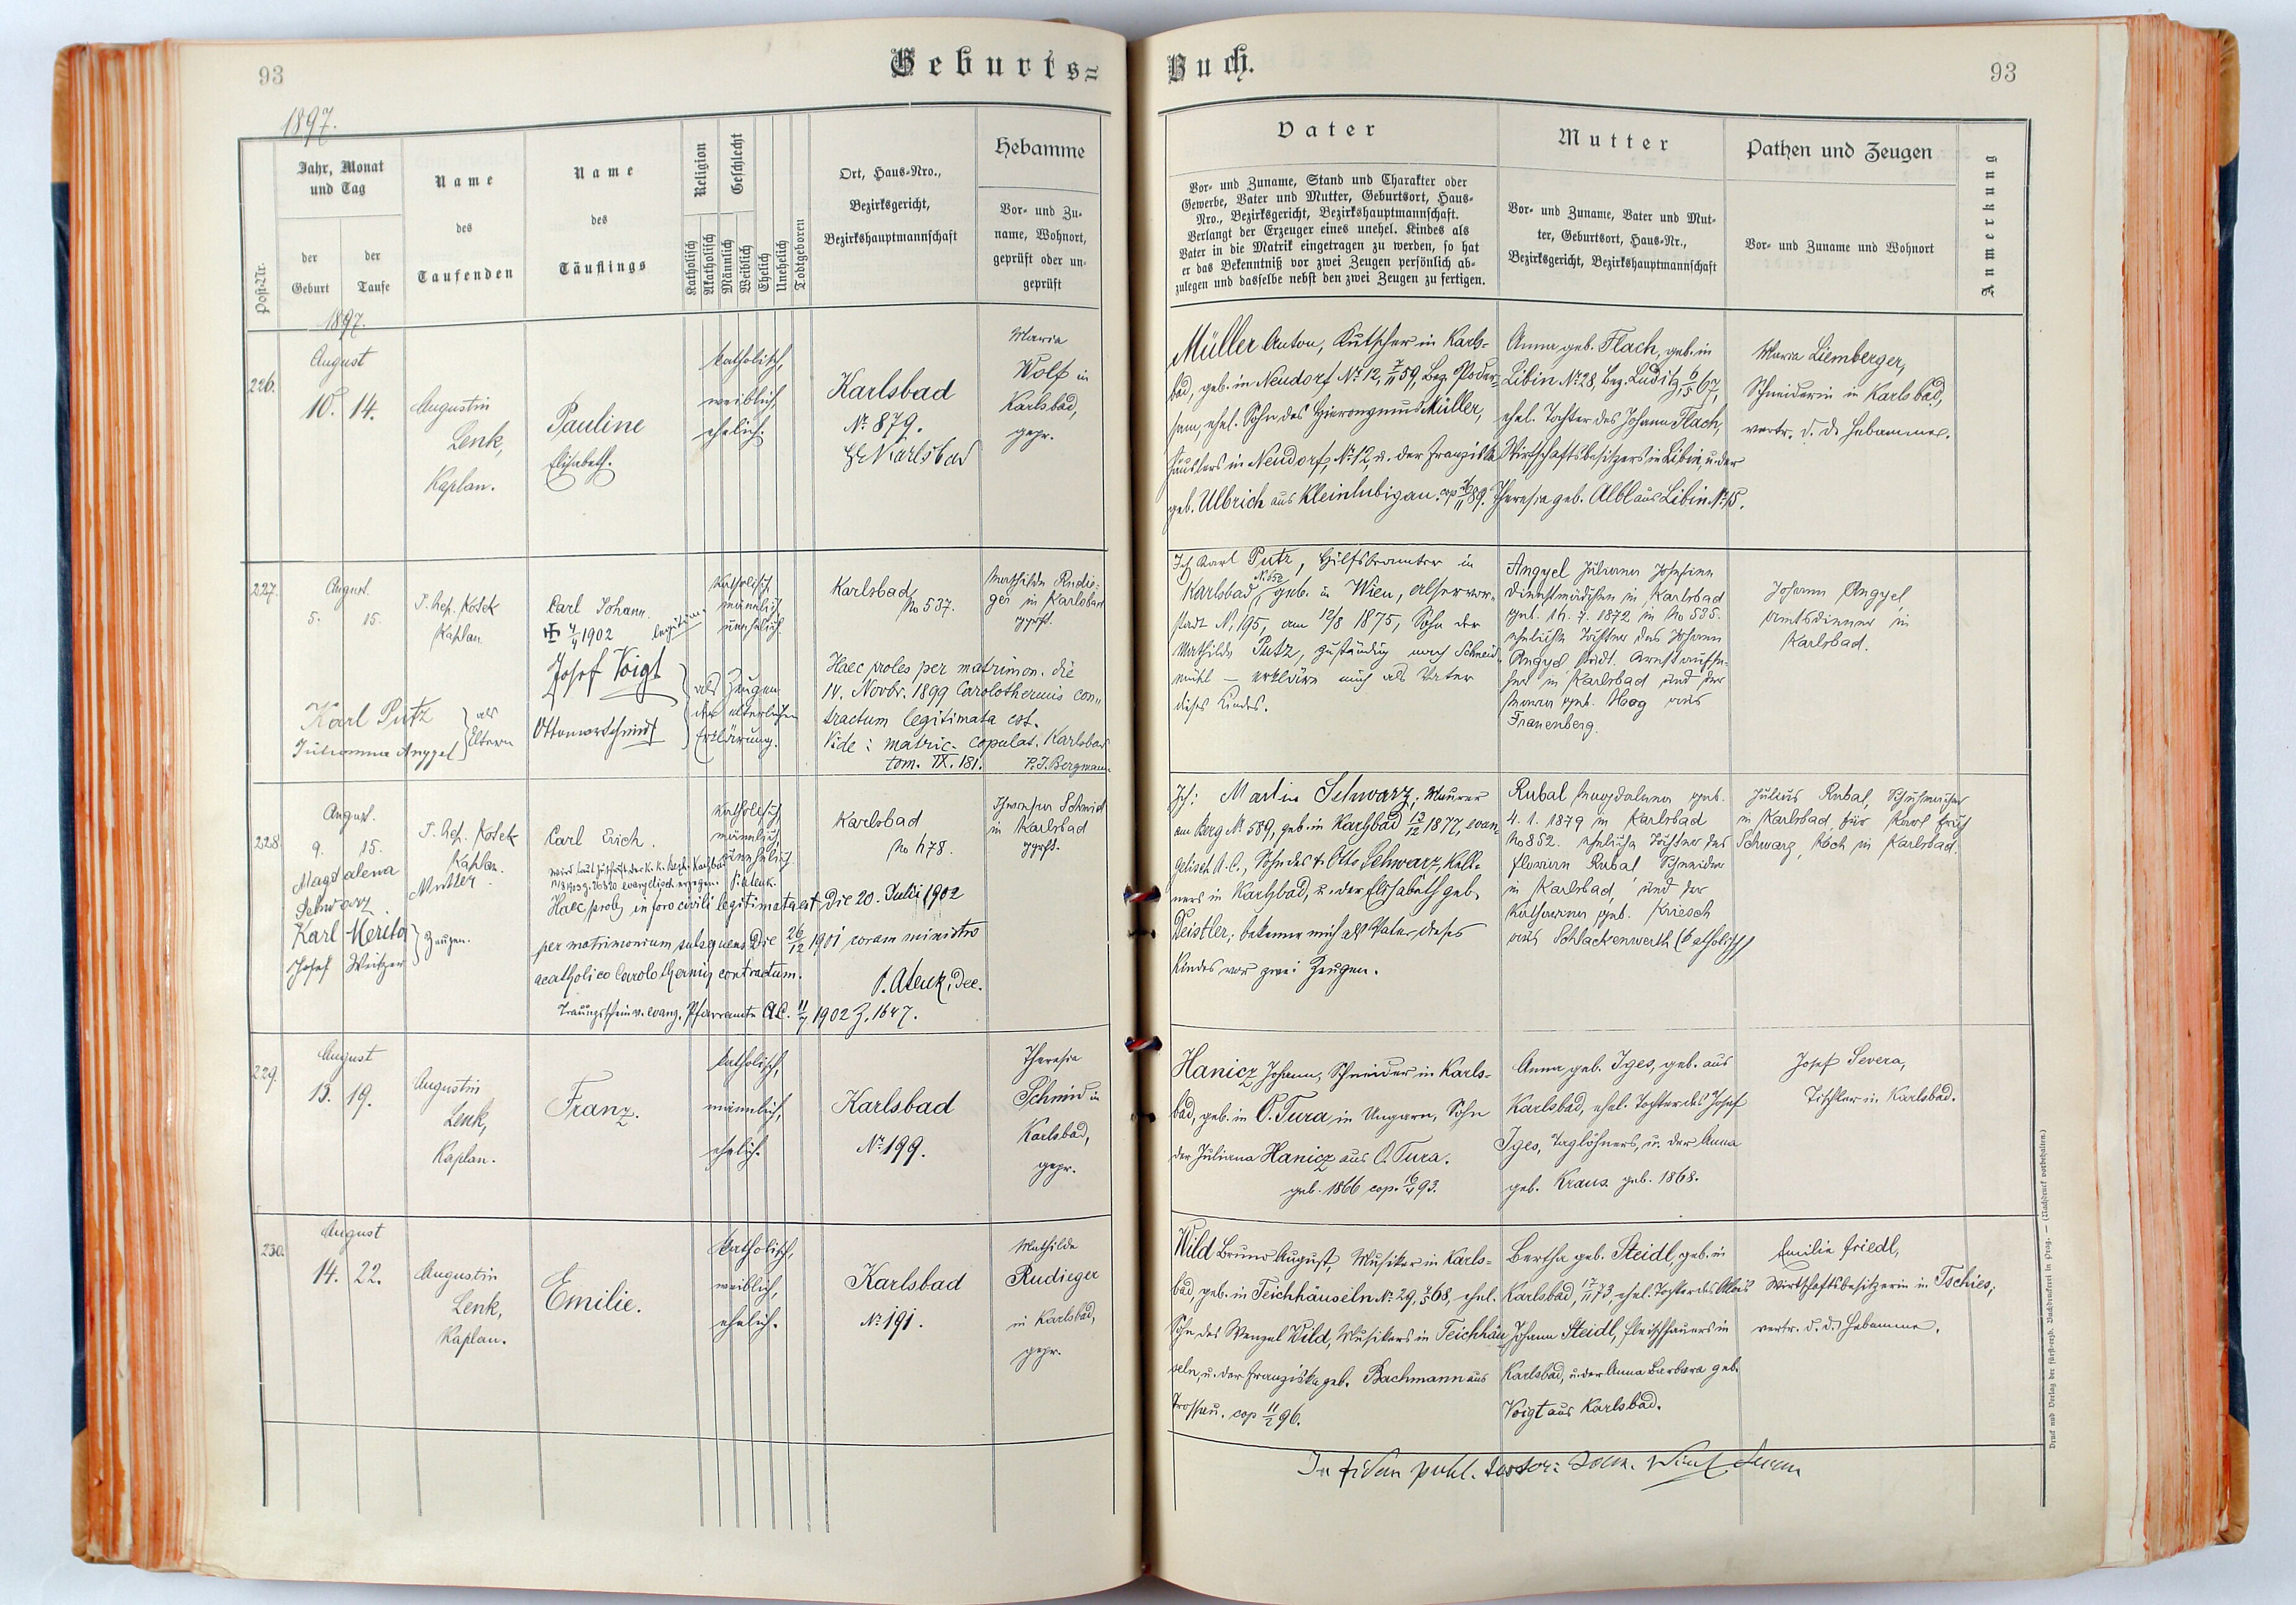 93
Geburts=
1897.
Post-Nr.
Jahr, Monat
und Tag
der
Geburt
der
Taufe
Name
des
Taufenden
Name
des
Täuflings
Religion
Geschlecht
Katholisch
Akatholisch
Männlich
Weiblich
Ehelich
Unehelich
Todtgeboren
Ort, Haus-Nro.,
Bezirksgericht,
Bezirkshauptmannschaft
Hebamme
Vor- und Zu-
name, Wohnort,
geprüft oder un-
geprüft
1897.
226.
August
10. 14.
Augustin
Lenk,
Kaplan.
Pauline
Elisabeth.
katholisch,
weiblich,
ehelich.
Karlsbad
No 879.
Karlsbad
Maria
Wolf in
Karlsbad,
gepr.
227.
August.
5. 15.
P. Kotek
Kaplan
Carl Johann.
1902
Katholisch
männlich
unehelich
Karlsbad
No 537.
Mathilde Rudie-
ger in Karlsbad
gprft.
Karl Putz
Julianna Angyel
als
Eltern
Josef Voigt
als Zeugen
der elterlichen
Erklärung.
Haec proles per matrimon. die
14. Novbr. 1899 Carolothermis con-
tractum legitimata est.
Vide: matric. copulat. Karlsbad
tom. IX. 181. P. J. Bergmann
228.
August.
9. 15.
P. Kotek
Kaplan.
Carl Erich.
Katholisch
männlich
unehelich
Karlsbad
No 478.
Theresia Schmid
in Karlsbad
gprft.
Magdalena
Schwarz
Mutter.
Karl Merita
Josef
Zeugen.
Haec proles in foro civili legitimata est die 20. Julii 1902
per matrimonium subsequens die 26/12 1901 coram ministro
acatholico Carolothermis contractum.
P. A. Lenk, Dec.
Trauungsschein v. evang. Pfarramte A.C. 11/7 1902 Z. 1647.
229.
August
13. 19.
Augustin
Lenk,
Kaplan.
Franz.
katholisch,
männlich,
ehelich.
Karlsbad
No 199.
Theresia
Schmid in
Karlsbad,
gepr.
230.
August
14. 22.
Augustin
Lenk,
Kaplan.
Emilie.
katholisch,
weiblich,
ehelich.
Karlsbad
No 191.
Mathilde
Rudieger
in Karlsbad,
gepr.
Buch.
93
Vater
Vor- und Zuname, Stand und Charakter oder
Gewerbe, Vater und Mutter, Geburtsort, Haus-
Nro., Bezirksgericht, Bezirkshauptmannschaft.
Verlangt der Erzeuger eines unehel. Kindes als
Vater in die Matrik eingetragen zu werden, so hat
er das Bekenntniß vor zwei Zeugen persönlich ab-
zulegen und dasselbe nebst den zwei Zeugen zu fertigen.
Mutter
Vor- und Zuname, Vater und Mut-
ter, Geburtsort, Haus-Nr.,
Bezirksgericht, Bezirkshauptmannschaft
Pathen und Zeugen
Vor- und Zuname und Wohnort
Anmerkung
Müller Anton, Kutscher in Karls-
bad, geb. in Neudorf No 12, 59, Bez. Poder-
sam, ehel. Sohn des Hieronymus Müller,
Häuslers in Neudorf, No 12, u. der Franziska
geb. Ulbrich aus Kleinlubigau. cop. 89.
Anna geb. Flach, geb. in
Libin No 28, Bez. Luditz, 6/5 67,
ehel. Tochter des Johann Flach,
Wirthschaftsbesitzers in Libin, u. der
Theresia geb. Albl aus Libin No 15.
Maria Liemberger,
Schneiderin in Karlsbad,
vertr. d. d. Hebamme.
Ich Karl Putz, Hilfsbeamter in
Karlsbad, geb. in Wien, Alservor-
stadt N. 195, am 12/8 1875, Sohn der
Mathilde Putz, zuständig nach Schneid-
mühl – erkläre mich als Vater
dieses Kindes.
Angyel Juliana Josefine
Dienstmädchen in Karlsbad
1872 in No 535.
eheliche Tochter des Johann
Angyel
in Karlsbad und der
Maria geb. Haag aus
Frauenberg.
Johann Angyel,
Amtsdiener in
Karlsbad.
Ich: Martin Schwarz, Maurer
am Berg No 589, geb. in Karlsbad 13/12 1877, evan-
gelisch A.C., Sohn des † Otto Schwarz, Kell-
ners in Karlsbad, u. der Elisabeth geb.
Deistler, bekenne mich als Vater dieses
Kindes vor zwei Zeugen.
Rubal Magdalena geb.
4. 1. 1879 in Karlsbad
No 852. eheliche Tochter des
Florian Rubal Schneider
in Karlsbad, und der
Katharina geb. Kriesch
aus Schlackenwerth (katholisch)
Julius Rubal, Schuhmacher
in Karlsbad für Karl Erich
Schwarz, Koch in Karlsbad.
Hanicz Johann, Schneider in Karls-
bad, geb. in O. Tura in Ungarn, Sohn
der Juliana Hanicz aus O. Tura.
geb. 1866 cop. 93.
Anna geb. Iges, geb. aus
Karlsbad, ehel. Tochter des Josef
Iges, Taglöhners, u. der Anna
geb. Kraus geb. 1868.
Josef Severa,
Tischler in Karlsbad.
Wild Bruno August, Musiker in Karls-
bad, geb. in Teichhäuseln No 29, 68, ehel.
Sohn des Wenzel Wild, Musikers in Teichhäu-
seln, u. der Franziska geb. Bachmann aus
Trossau. cop 11/2 96.
Bertha geb. Steidl, geb. in
Karlsbad, 17/11 73, ehel. Tochter des Alois
Johann Steidl, Fleischhauers in
Karlsbad, u. der Anna Barbara geb.
Voigt aus Karlsbad.
Emilie Friedl,
Wirthschaftsbesitzerin in Tschies,
vertr. d. d. Hebamme.
Druck und Verlag der fürst-erzb. Buchdruckerei in Prag. — (Nachdruck vorbehalten.)